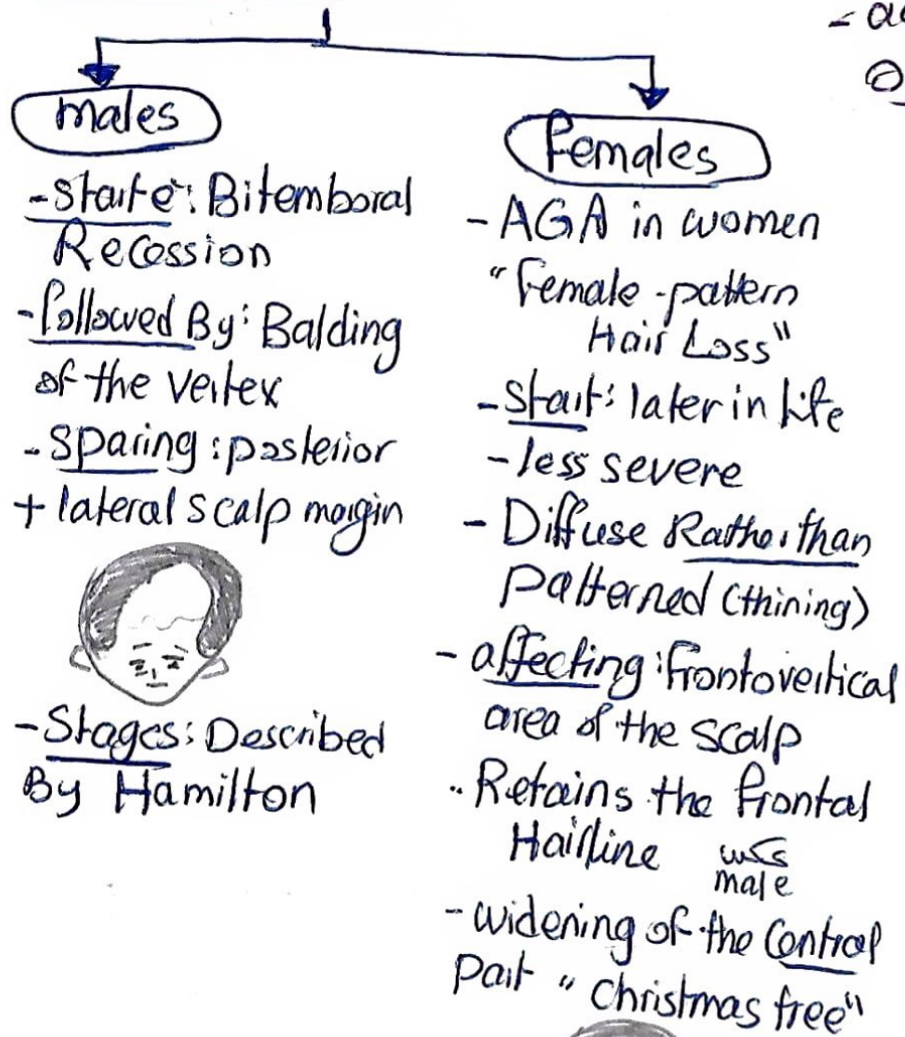 males
-Starte: Bitemboral
Recession
-followed By: Balding
of the vertex
-Sparing: posterior
+ lateral scalp margin
-Stages: Described
By Hamilton
Females
- AGA in women
"Female-pattern
Hair Loss"
-Start: later in life
-less severe
- Diffuse Rather than
patterned (thining)
- affecting: frontovertical
area of the scalp
- Retains the frontal
Hairline عكس
male
- widening of the Central
Part "Christmas tree"